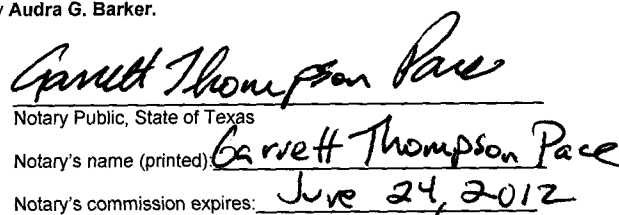 Audra G. Barker.
Garrett Thompson Pace
Notary Public, State of Texas
Notary's name (printed): Garrett Thompson Pace
Notary's commission expires: June 24, 2012